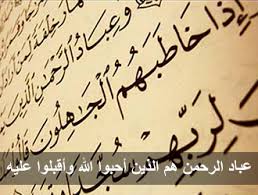 خلفة لمن
وَعِبَادُ الرَّحْمَٰنِ الَّذِينَ
إِذَا خَاطَبَهُمُ الْجَٰهِلُونَ
لِرَبِّهِمْ سُجَّدًا
عباد الرحمن هم الذين أحبوا الله وأقبلوا عليه